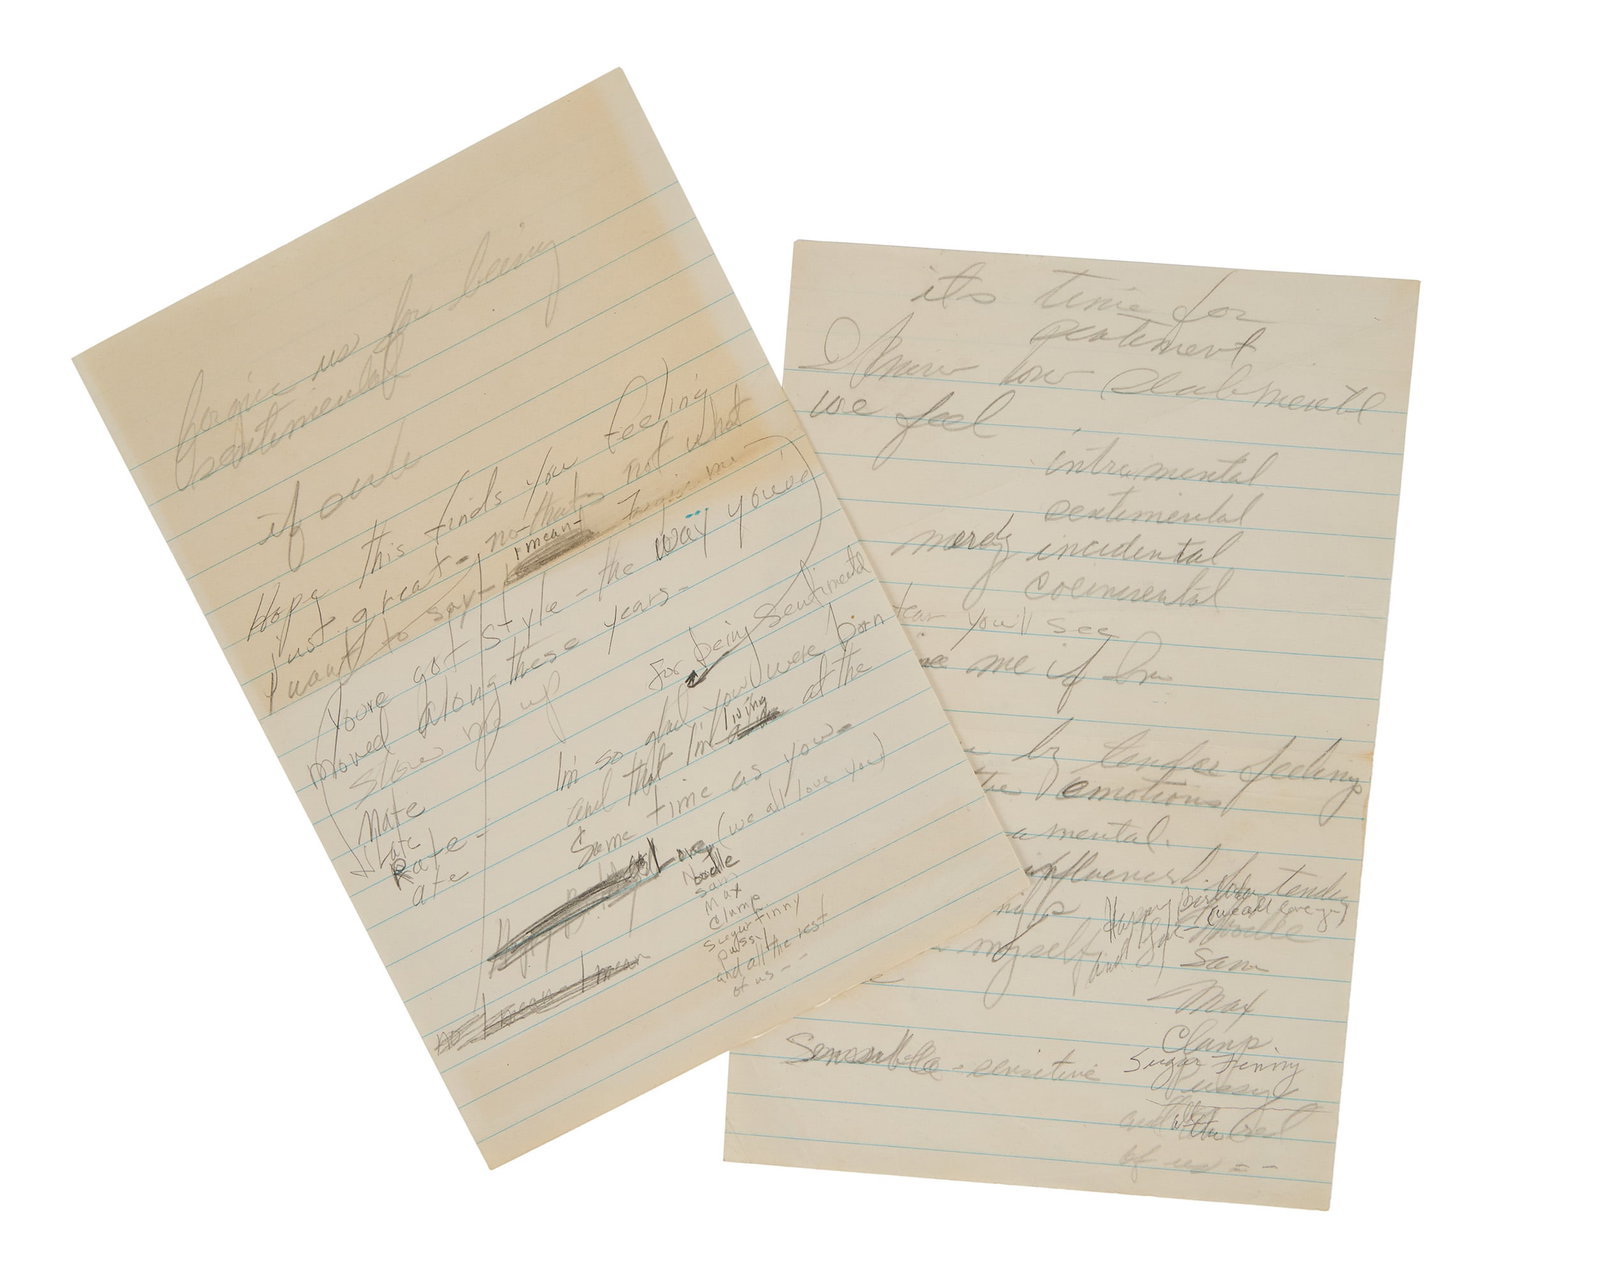 forgive us for being
sentimental
if
Hope this finds you feeling
just great - no that's not what
I want to say - I mean - Forgive me
for being sentimental
You're got style - the way you've
moved along these years -
Slow me up
I'm so glad you were born
and that I'm living at the
Same time as you -
Mate
Late
Rate -
ate
Love, (we all love you)
Noodle
Sam
Max
Clump
Sugar Finny
pussy
and all the rest
of us - -
no I mean I mean
its time for
sentiment
I know how
we feel
intrumental
sentimental
incidental
coeincental
tear you'll see
me if I'm
by tender feeling
the emotions
a mental.
influenced tender
Happy Birthday
and Love (we all love you)
myself
Noodle
Sam
Max
Clump
Sugar Finny
pussy
and all the rest
of us - -
- sensitive